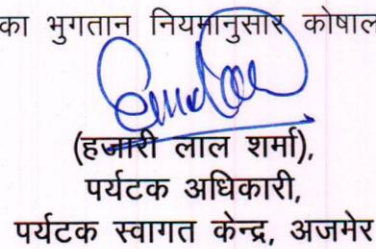 का भुगतान नियमानुसार कोषाल
(हजारी लाल शर्मा),
पर्यटक अधिकारी,
पर्यटक स्वागत केन्द्र, अजमेर